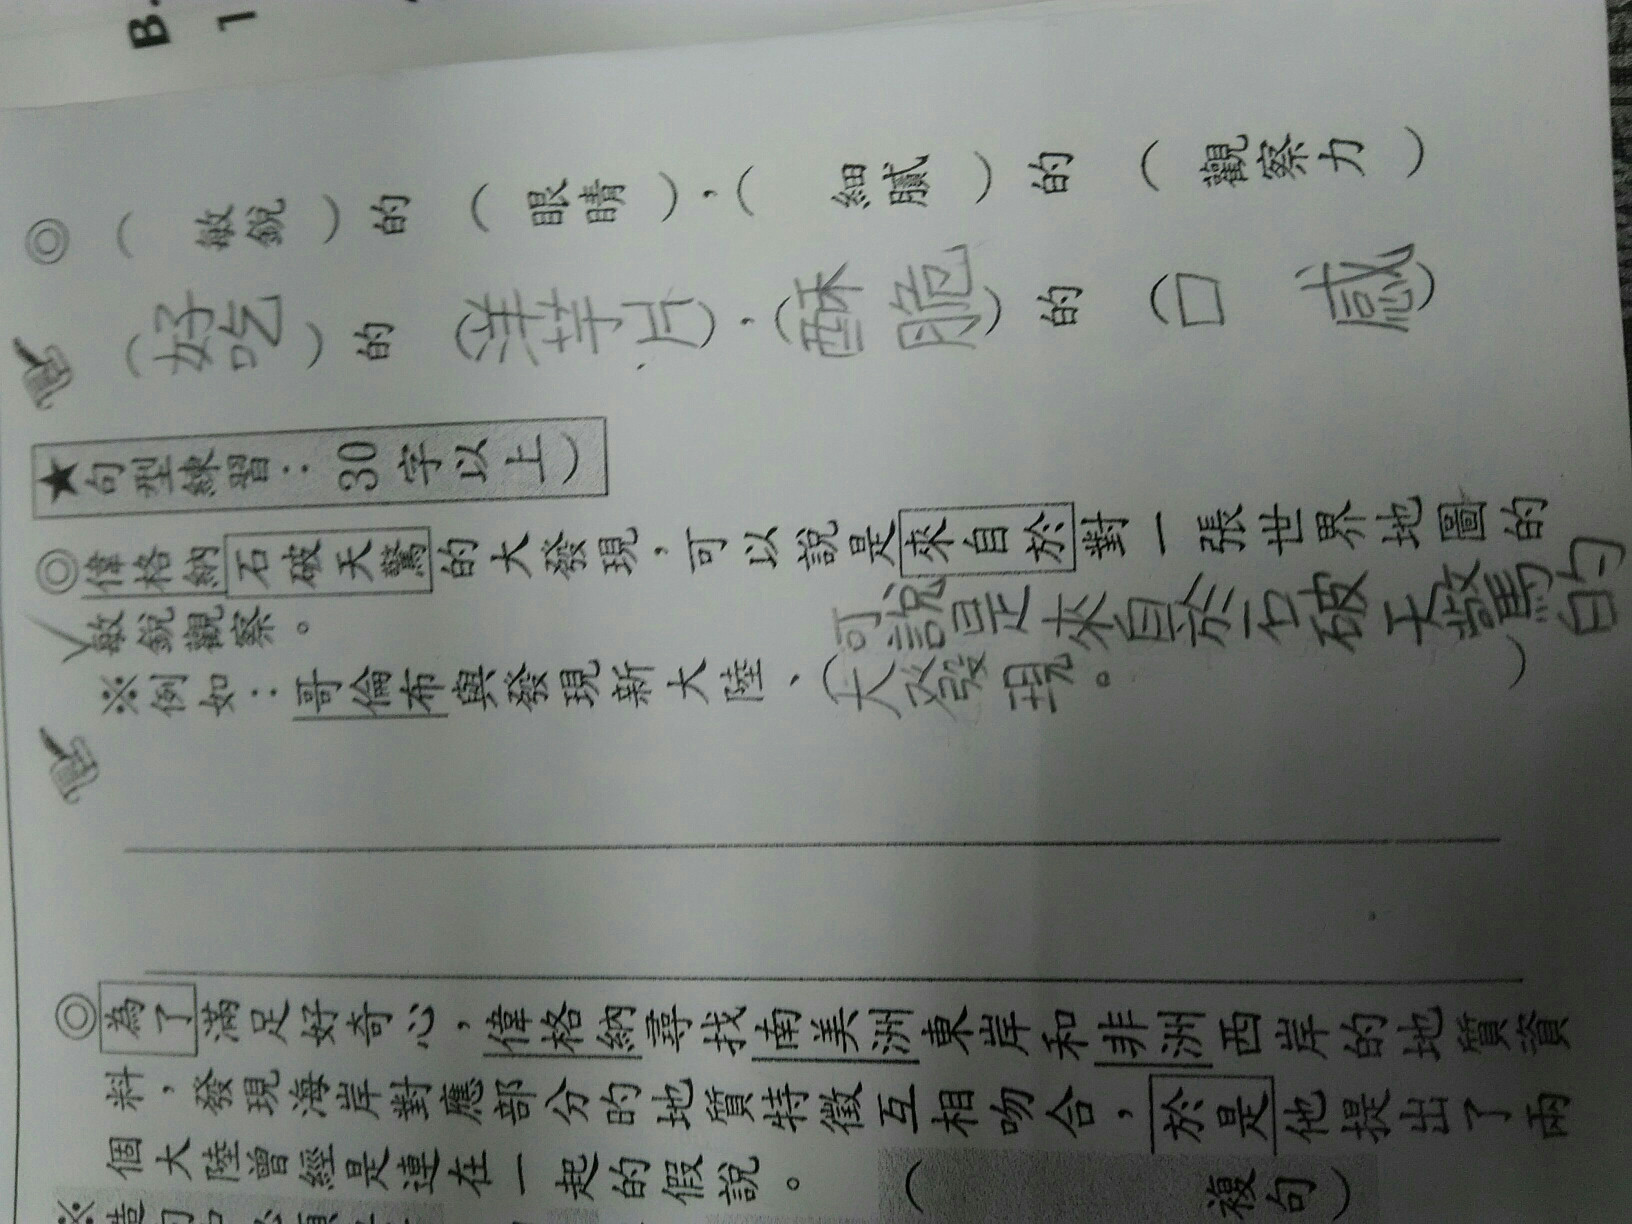 B.
1
◎（敏銳）的（眼睛），（細膩）的（觀察力）
（好吃）的（洋芋片），（酥脆）的（口感）
★句型練習：30字以上）
◎偉格納石破天驚的大發現，可以說是來自於對一張世界地圖的
敏銳觀察。
可說是來自於石破天驚的
※例如：哥倫布與發現新大陸、（大發現。）
◎為了滿足好奇心，偉格納尋找南美洲東岸和非洲西岸的地質資
料，發現海岸對應部分的地質特徵互相吻合，於是他提出了兩
個大陸曾經是連在一起的假說。
（複句）
※造句